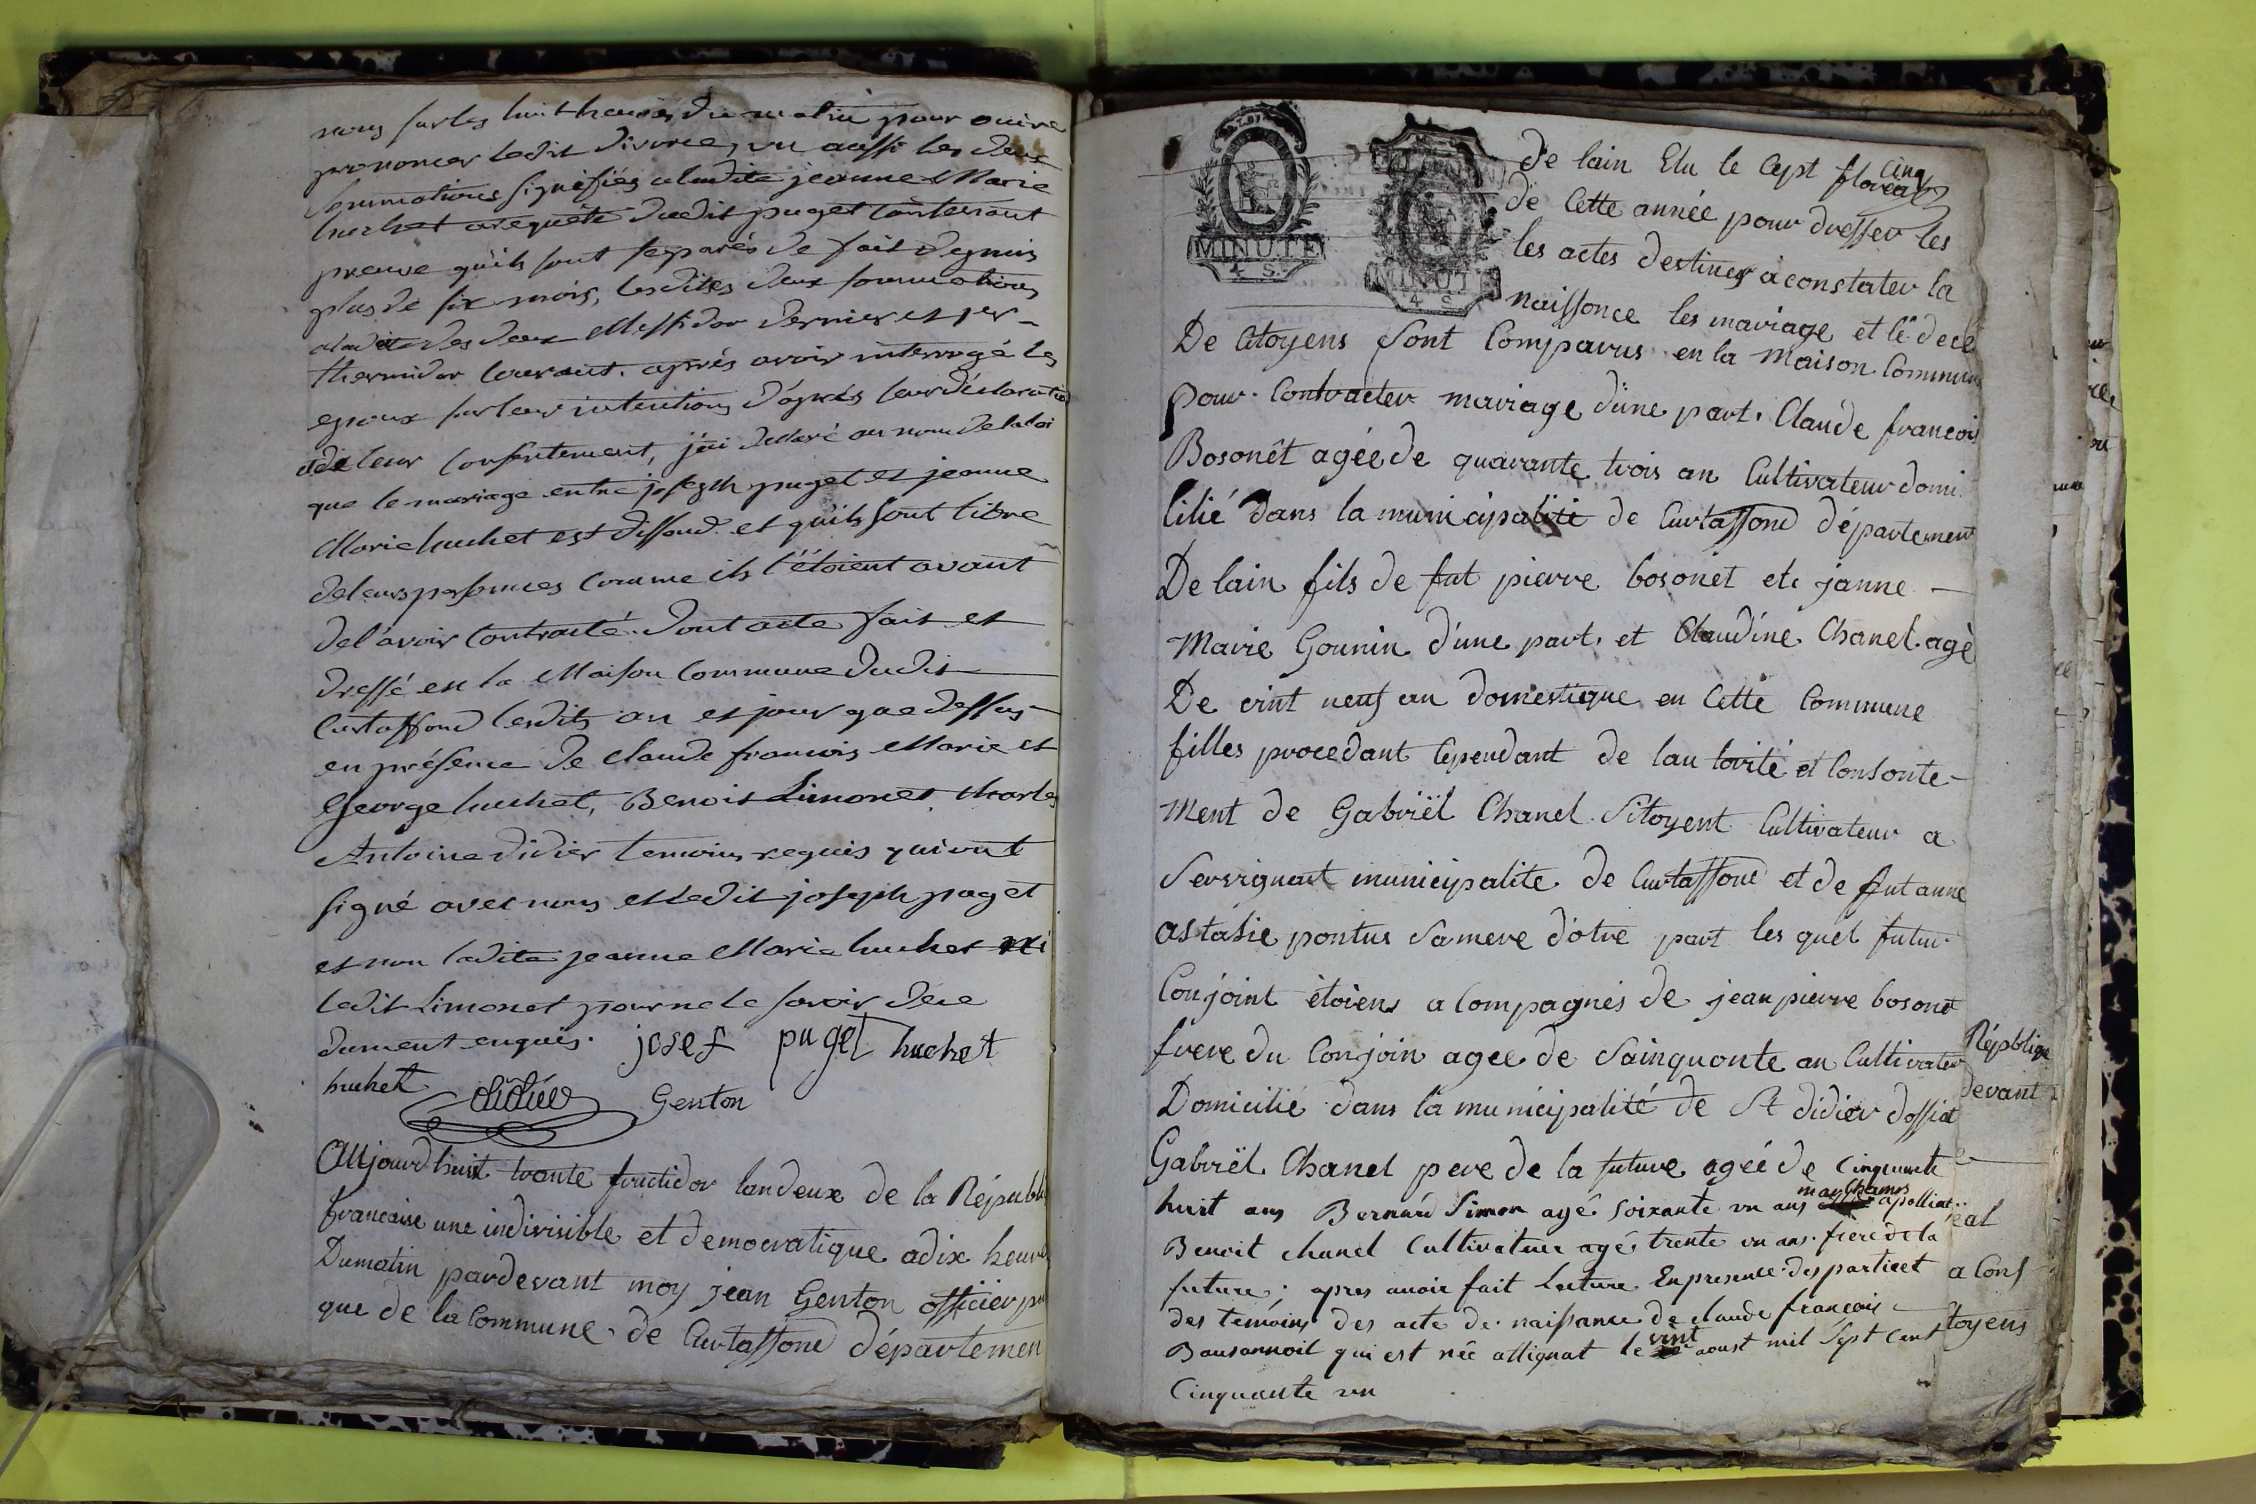 nous sur les huit heures du matin pour ouire
prononcer ledit divorce, vu aussi les deux
sommations signifiés a ladite jeanne Marie
huchet arequête dudit puget contenant
preuve quils sont separés de fait depuis
plus de six mois, lesdites deux sommations
des deux Messidor dernier et 1er
thermidor courant. aprés avoir interrogé les
epoux sur leur intentions d'aprés leur déclaration
et de leur consentement, j'ai declaré au nom de la loi
que le mariage entre joseph puget et jeanne
Marie huchet est dissoud et quils sont libre
de leurs personnes comme ils l'étoient avant
de l'avoir contracté. Dont acte fait et
dressé en la Maison Commune dudit
Curtaffond lesdits an et jour que dessus
en présence de claude francois Marie et
George huchet, Benoit Limonet, charles
Antoine didier temoins requis qui ont
signé avec nous et ledit joseph puget
et non ladite jeanne Marie huchet ni
ledit Limonet pour ne le savoir de ce
dument enquis. josef puget huchet
huchet didier Genton
Aujourdhuit trante fructidor lan deux de la Républi
francaise une indivisible et democratique a dix heure
Dumatin pardevant moy jean Genton officier pu
que de la Commune de Curtaffond départemen
MINUTE
4 S.
MINUT
4 S
De lain Elu le Cept floreal cinq
de Cette année pour dresser les
les actes destines a constater la
naissonce les mariage et le décé
De Citoyens Sont Comparus en la Maison Commune
pour Contracter mariage d'une part. Claude francois
Bosonêt agée de quarante trois an Cultivateur domi
cilié dans la municipalité de Curtaffond département
De lain fils de fut pierre bosonet ete janne
Marie Gounin d'une part, et Claudine Chanel agè
De vint neuf an domestique en Cette Commune
filles procedant Cependant de lau torité et Consonte-
ment de Gabriël Chanel Sitoyent Cultivateur a
Servignat municipalite de Curtaffond et de fut anne
astasie pontus Samere d'otre part les quel futur
Conjoint étoiens a Compagnés de jean pierre bosonet
frere du Conjoin agee de Sainquonte an Cultivateu
Domicilié dans la municipalité de St didier dossiat
Gabriël Chanel pere de la future agéé de Cinquante
huit ans Bernard Simon agé soixante un ans marchamts apolliat
Benoit chanel Cultivateur agé trente un ans. frere de la
future; apres avoir fait Lecture En presence des partiert
des temoins des acte de naissance de claude françois
Bausonnoit qui est née attignat le vint aoust mil Sept Cent
Cinquante un
Républiqe
devant
eal
a Cons
toyens